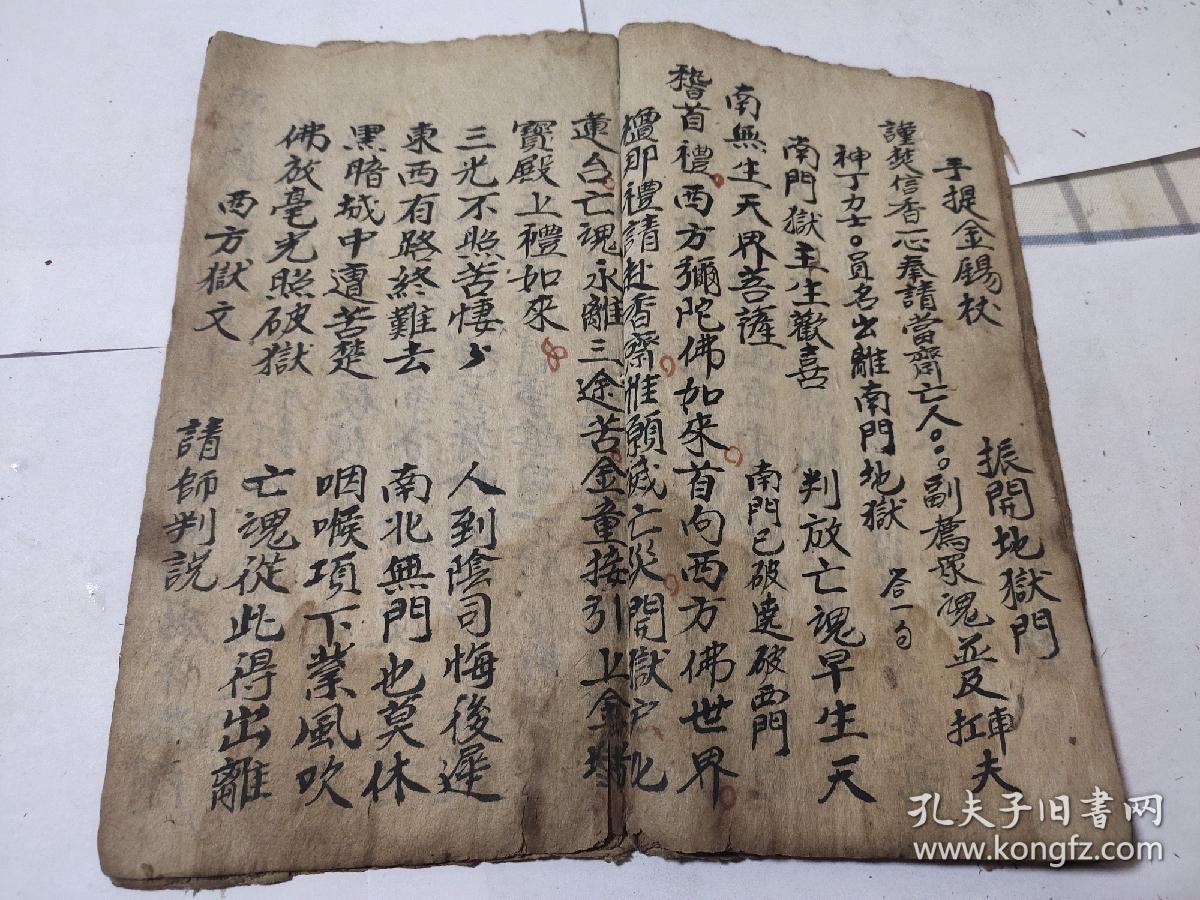 手提金錫杖 振開地獄門
謹焚信香一心奉請當齋亡人○○○副薦眾魂並及扛車夫
神丁力士○員名出離南門地獄 答一句
南門獄主生歡喜 判放亡魂早生天
南無生天界菩薩 南門已破遶破西門
稽首禮西方彌陀佛如來首向西方佛世界
檀那禮請赴香齋惟願滅亡災開獄戶化
蓮台亡魂永離三途苦金童接引上金堦
寶殿上禮如來
三光不照苦悽々 人到陰司悔後遲
東西有路終難去 南北無門也莫休
黑暗城中遭苦楚 咽喉項下業風吹
佛放毫光照破獄 亡魂從此得出離
西方獄文 請師判說
孔夫子旧书网
www.kongfz.com